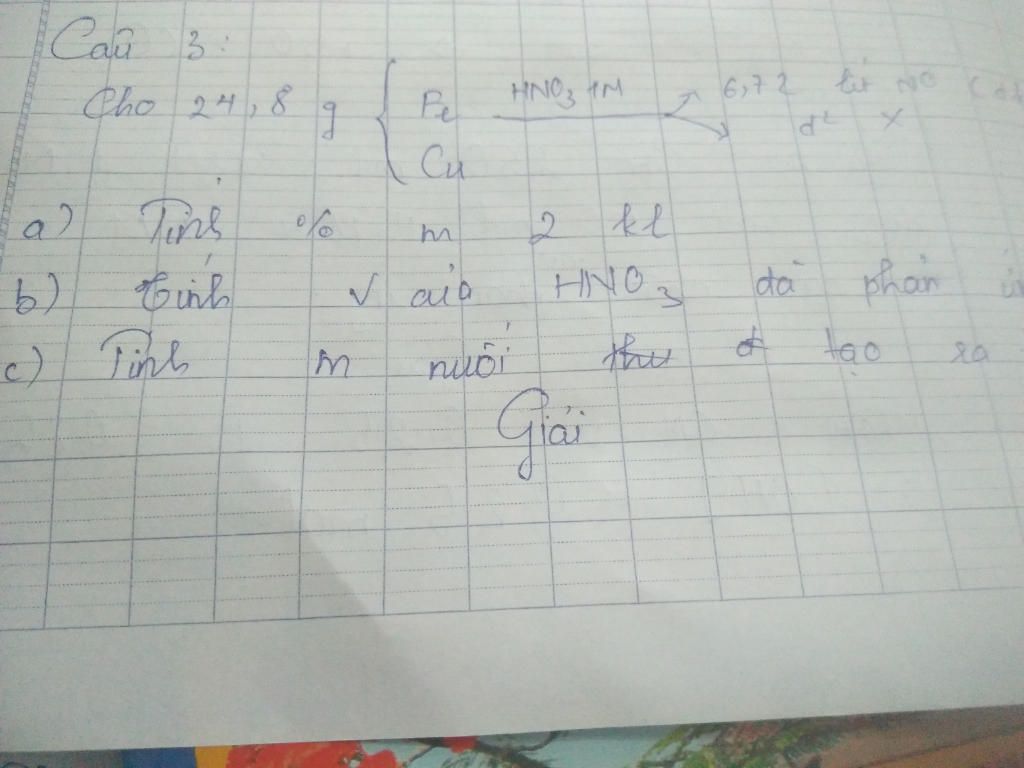 Câu 3:
Cho 24,8 g { Fe HNO3 1M 6,72 lít NO
Cu d² X
a) Tính % m 2 kl
b) Tính V của HNO3 đã phản
c) Tính m muối thu đ tạo ra
Giải